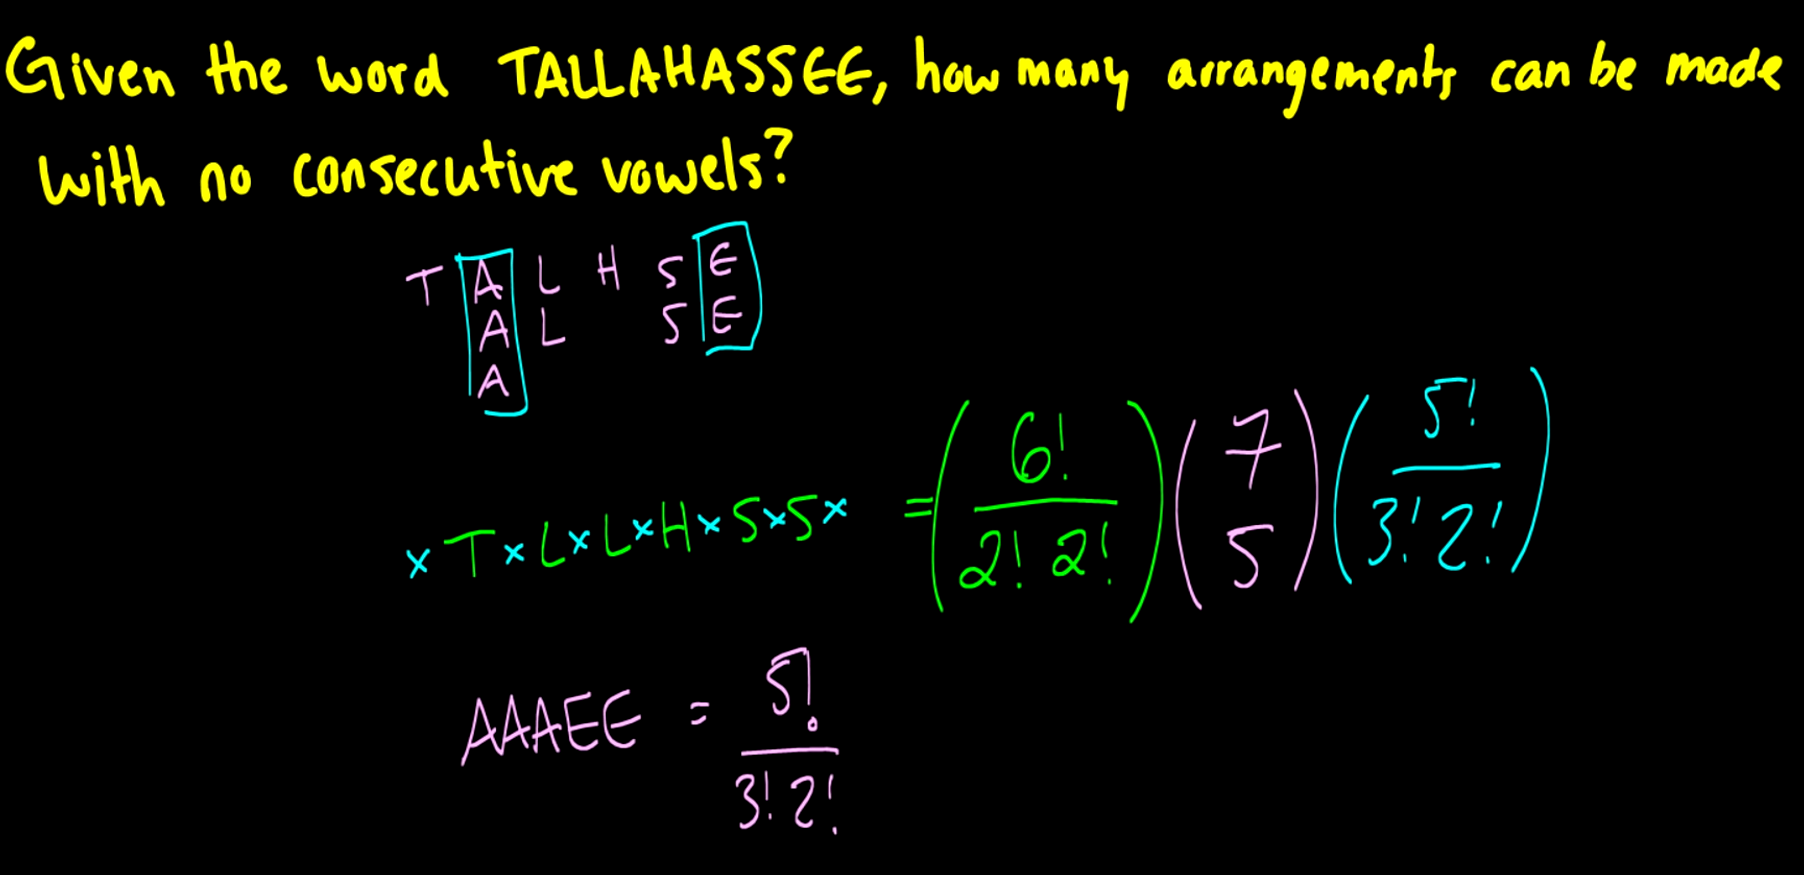 Given the word TALLAHASSEE, how many arrangements can be made
with no consecutive vowels?
T A L H S E
A L S E
A
× T × L × L × H × S × S × = (6!/(2! 2!)) (7 5) (5!/(3! 2!))
AAAEE = 5!/(3! 2!)